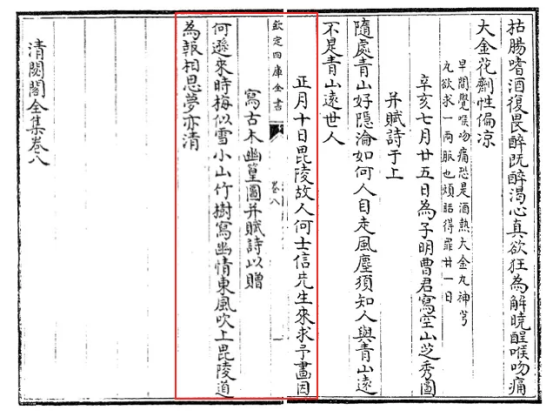 枯腸嗜酒復畏醉既醉渴心真欲狂為解曉酲喉吻痛
大金花劑性偏凉
早間覺喉吻痛恐是酒熱大金丸神芎
丸欲求一兩服也煩詔得罪廿一日
辛亥七月廿五日為子明曹君寫空山芝秀圖
并賦詩于上
隨處青山好隱淪如何人自走風塵須知人與青山遠
不是青山遠世人
正月十日毘陵故人何士信先生來求予畫因
欽定四庫全書
卷八
寫古木幽篁圖并賦詩以贈
何遜來時梅似雪小山竹樹寫幽情東風吹上毘陵道
為報相思夢亦清
清閟閣全集卷八